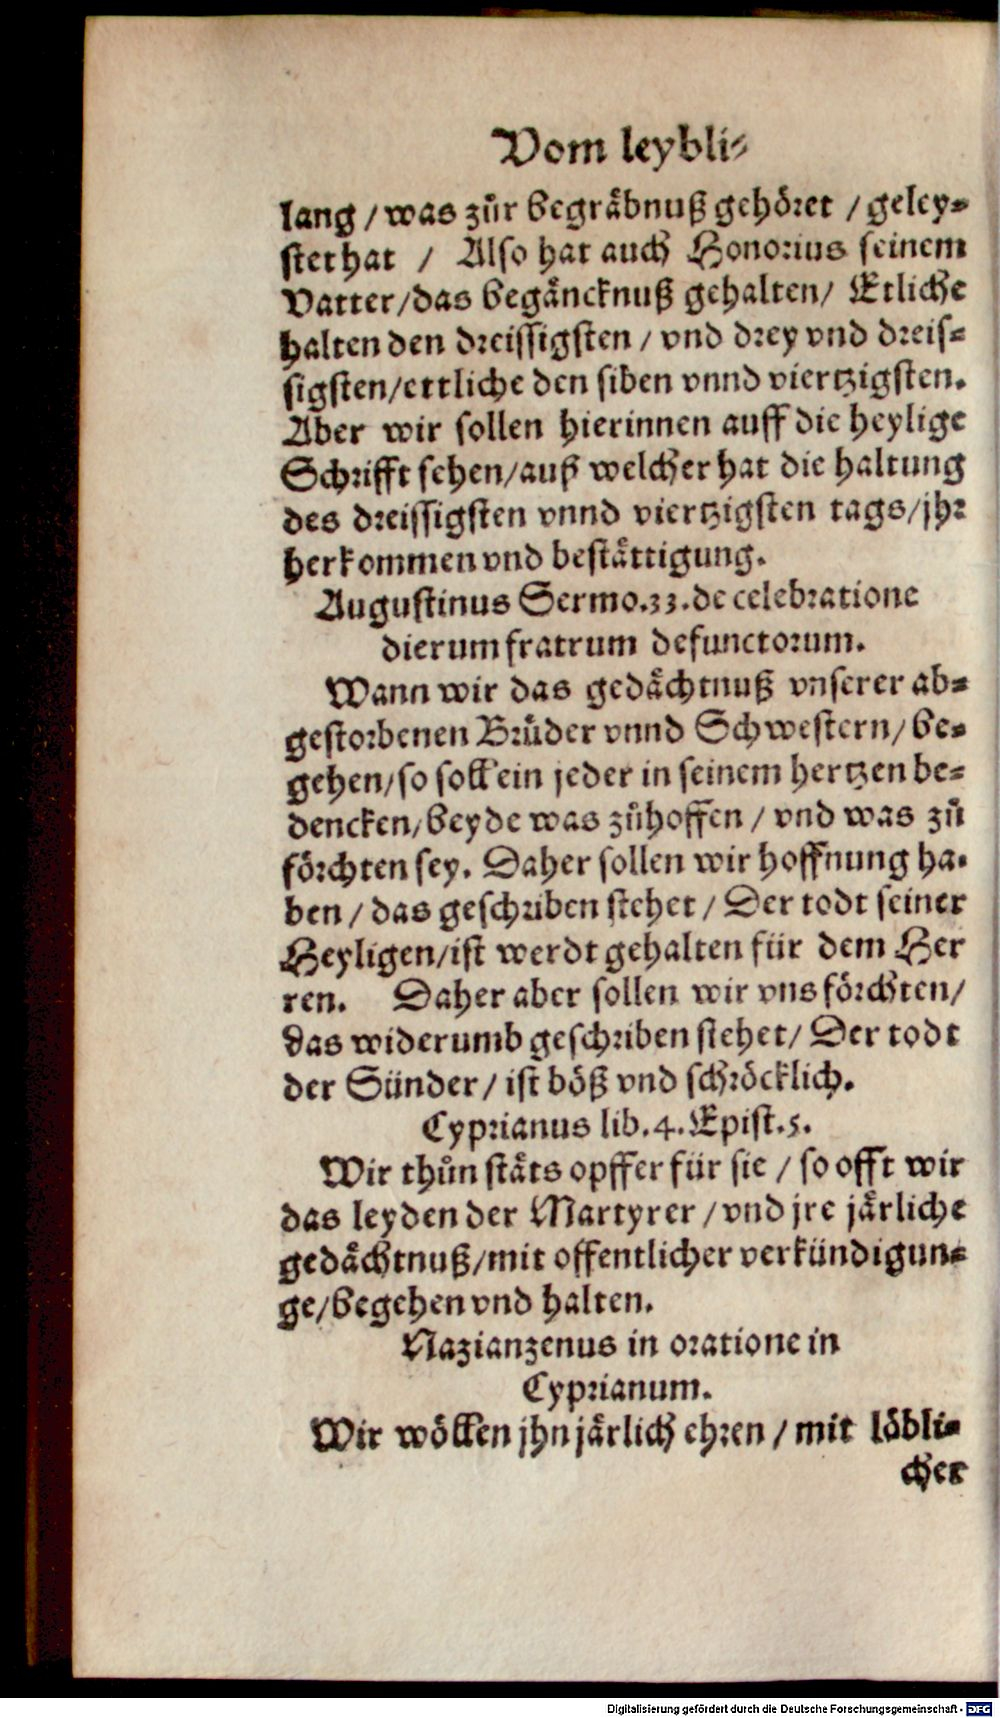 Vom leybli-
lang / was zůr begräbnuß gehöret / geley-
stet hat / Also hat auch Honorius seinem
Vatter / das begäncknuß gehalten / Etliche
halten den dreissigsten / vnd drey vnd dreis-
sigsten / ettliche den siben vnnd viertzigsten.
Aber wir sollen hierinnen auff die heylige
Schrifft sehen / auß welcher hat die haltung
des dreissigsten vnnd viertzigsten tags / jhr
herkommen vnd bestättigung.
Augustinus Sermo. 33. de celebratione
dierum fratrum defunctorum.
Wann wir das gedächtnuß vnserer ab-
gestorbenen Brüder vnnd Schwestern / be-
gehen / so soll ein jeder in seinem hertzen be-
dencken / beyde was zůhoffen / vnd was zů
förchten sey. Daher sollen wir hoffnung ha-
ben / das geschriben stehet / Der todt seiner
Heyligen / ist werdt gehalten für dem Her
ren. Daher aber sollen wir vns förchten /
das widerumb geschriben stehet / Der todt
der Sünder / ist böß vnd schröcklich.
Cyprianus lib. 4. Epist. 5.
Wir thůn stäts opffer für sie / so offt wir
das leyden der Martyrer / vnd jre järliche
gedächtnuß / mit offentlicher verkündigun-
ge / begehen vnd halten.
Nazianzenus in oratione in
Cyprianum.
Wir wöllen jhn järlich ehren / mit löbli-
cher
Digitalisierung gefördert durch die Deutsche Forschungsgemeinschaft - DFG